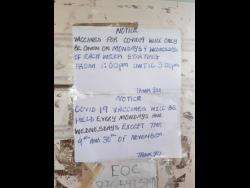 NOTICE
VACCINES FOR COVID19 WILL ONLY
BE GIVEN ON MONDAYS & WEDNESDAYS
OF EACH WEEK STARTING
FROM 1:00pm UNTIL 3:00pm
THANK YOU
NOTICE
COVID 19 VACCINES WILL BE
HELD EVERY MONDAYS AND
WEDNESDAYS EXCEPT THE
9th AND 30th OF NOVEMBER
THANK YOU
EOC